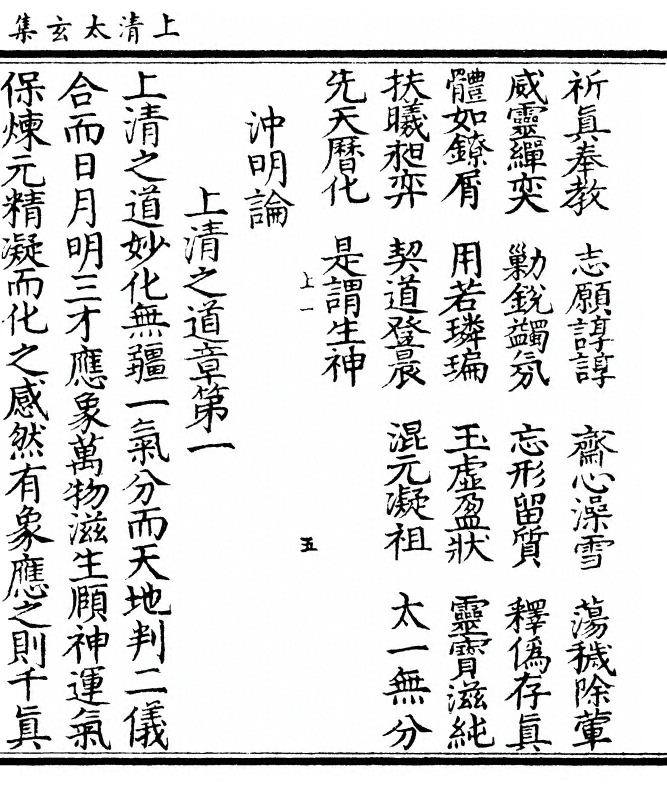 上清太玄集
祈眞奉教 志願諄諄 齋心澡雪 蕩穢除葷
威靈繟奕 勦銳蠲氛 忘形留質 釋僞存眞
體如鐐屑 用若璘㻞 玉虛盈狀 靈寶滋純
扶曦裎弈 契道登晨 混元凝祖 太一無分
先天曆化 是謂生神
上一 五
沖明論
上清之道章第一
上清之道妙化無疆一氣分而天地判二儀
合而日月明三才應象萬物滋生頤神運氣
保煉元精凝而化之感然有象應之則千眞